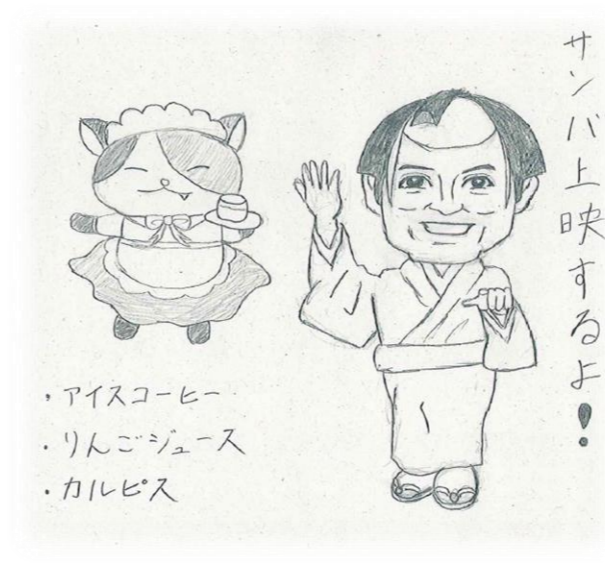 サンバ上映するよ!
・アイスコーヒー
・りんごジュース
・カルピス